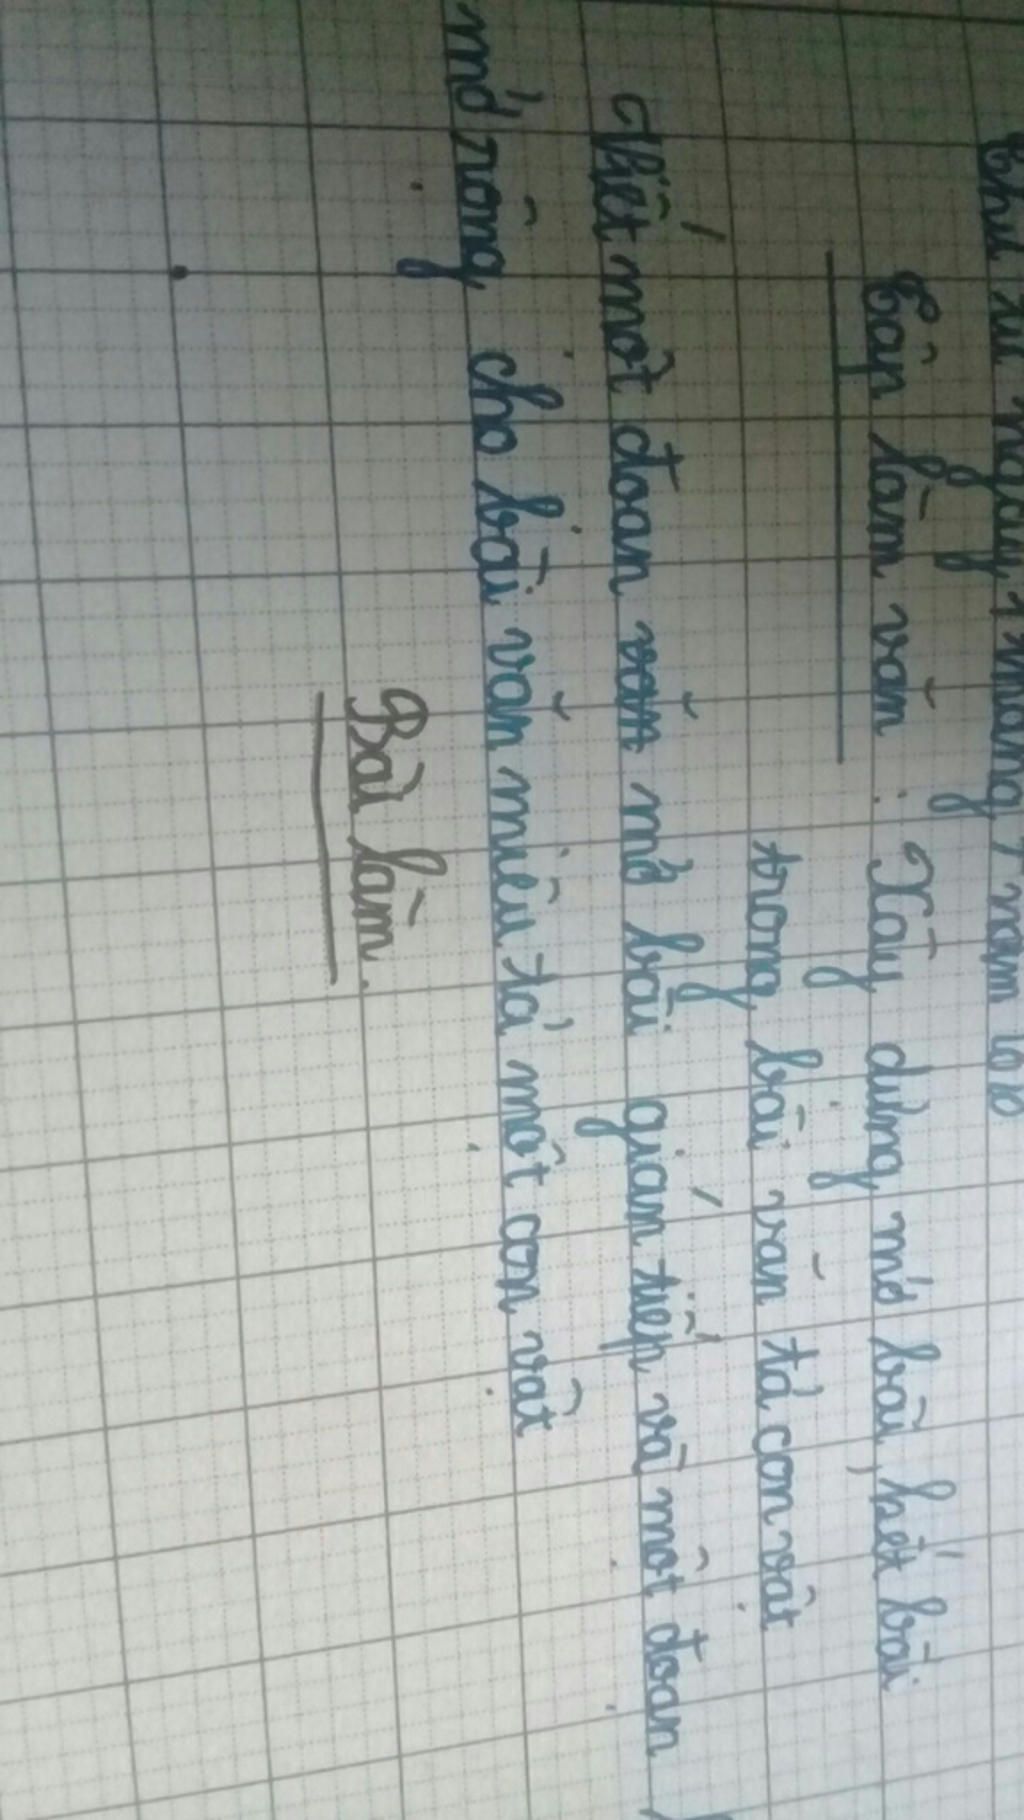 Thứ tư ngày 1 tháng 7 năm
Tập làm văn : Xây dựng mở bài, kết bài
trong bài văn tả con vật
Viết một đoạn văn mở bài gián tiếp và một đoạn
mở rộng cho bài văn miêu tả một con vật
Bài làm.